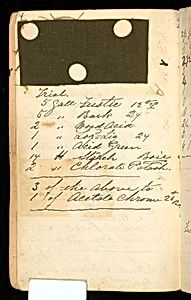 Trial
5 Gall Fustic 12°
5 " Bark 24
2 " Acid
1 " 24
1 " Acid Green
14 # Starch Boil
2 " Chlorate Potash
3 of the above to
1 of Acetate Chrome 21